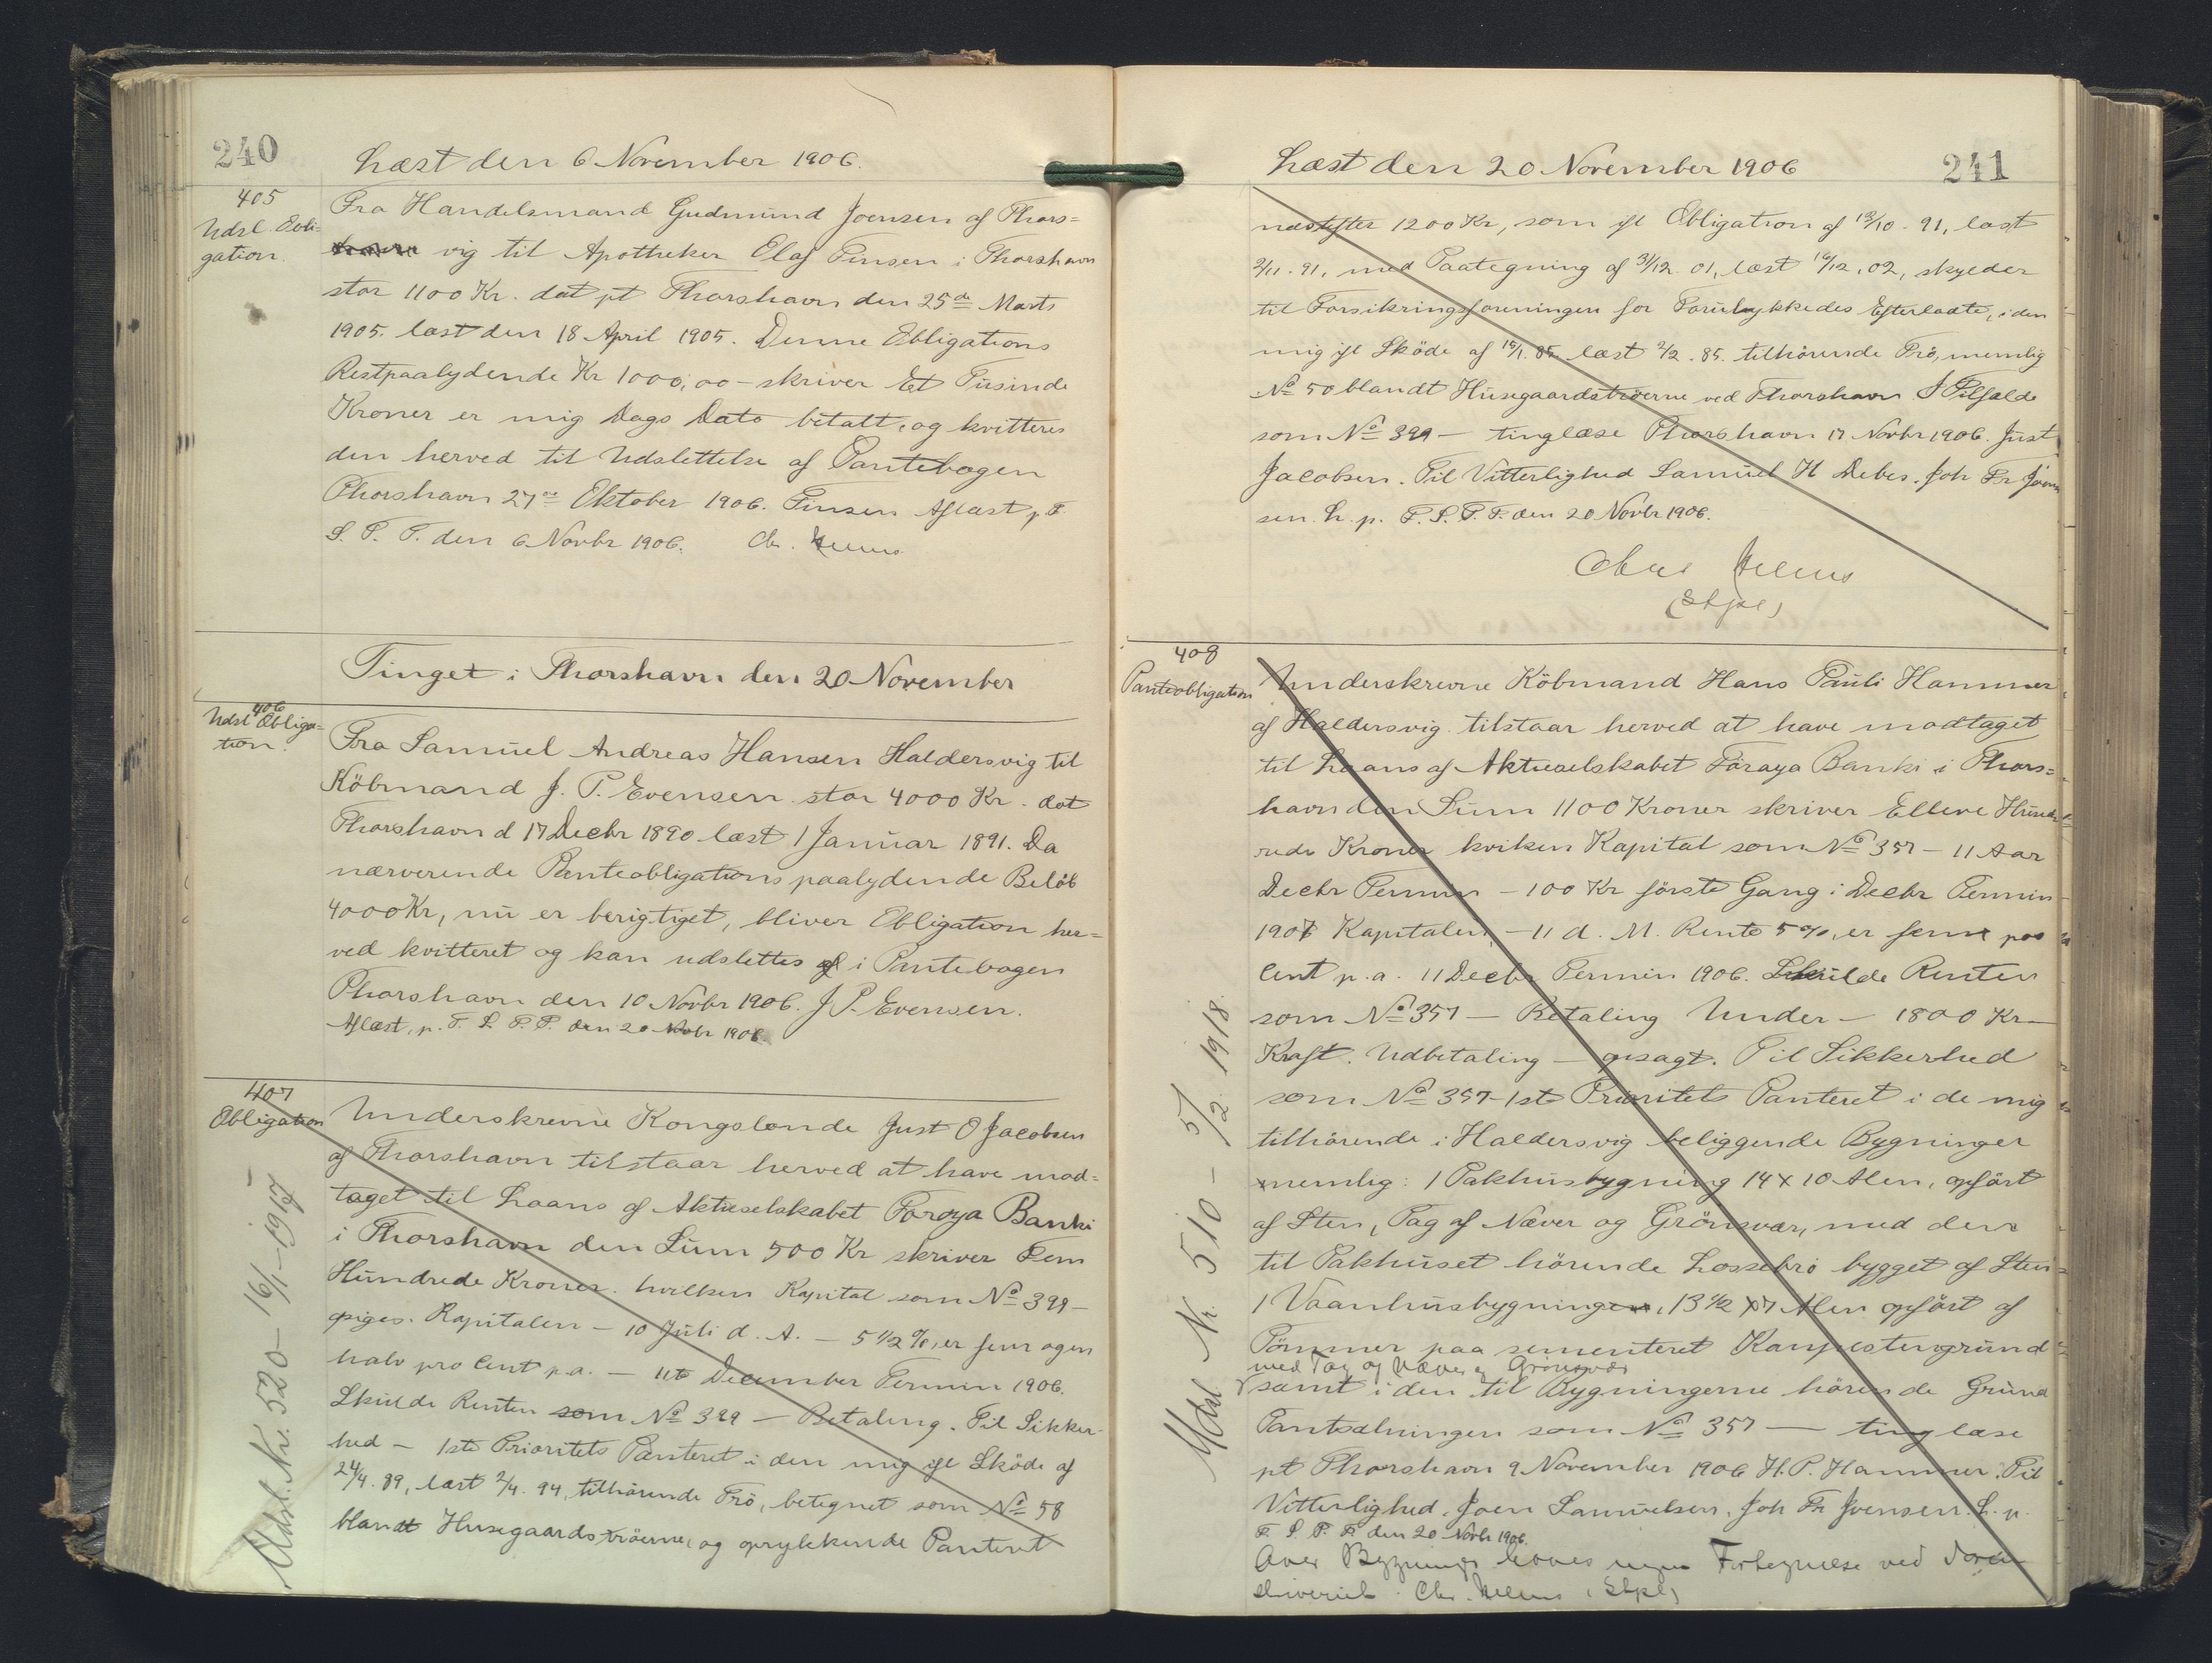 240
Læst den 6 November 1906.
405
Udsl. Obli-
gation.
Fra Handelsmand Gudmund Joensen af Thors=
vig til Apotheker Olaf Finsen i Thorshavn
stor 1100 Kr. dat pt Thorshavn den 25de Marts
1905. læst den 18 April 1905. Denne Obligations
Restpaalydende Kr 1000,00 - skriver Et Tusinde
Kroner er mig Dags Dato betalt, og kvitteres
den herved til Udslettelse af Pantebogen
Thorshavn 27de Oktober 1906. Finsen Aflæst p. F.
S. P. T. den 6 Novbr 1906. Chr. Helms
Tinget i Thorshavn den 20 November
406
Udsl Obliga=
tion.
Fra Samuel Andreas Hansen Haldersvig til
Köbmand J. P. Evensen stor 4000 Kr. dat
Thorshavn d 17 Decbr 1890 læst 1 Januar 1891. Da
nærværende Panteobligations paalydende Belöb
4000 Kr, nu er berigtiget, bliver Obligation her=
ved kvitteret og kan udslettes i Pantebogen
Thorshavn den 10 Novbr 1906. J. P. Evensen.
Aflæst, p. F. S. P. T. den 20 Novbr 1906.
407
Obligation
Underskrevne Kongslende Just O Jacobsen
af Thorshavn tilstaar herved at have mod=
taget til Laans af Aktieselskabet Foroya Banki
i Thorshavn den Sum 500 Kr skriver Fem
Hundrede Kroner. hvilken Kapital som No 399 -
psiges. Kapitalen - 10 Juli d. A. - 5 1/2 %, er fem ogen
halv pro Cent p.a. - 11te December Termin 1906.
Skulde Renten som No 399 - Betaling. Til Sikker-
hed - 1ste Prioritets Panteret i den mig ifl Sköde af
24/4. 89, læst 2/4. 94, tilhörende Trö, betegnet som No 58
blandt Husegaardströerne, og oprykkende Panteret
Udsl. Nr. 520 - 16/1 - 1917
241
Læst den 20 November 1906
næstefter 1200 Kr, som ifl Obligation af 13/10. 91, læst
2/11. 91, med Paategning af 31/12 01, læst 16/12, 02, skylder
til Forsikringsforeningen for Forulykkedes Efterladte, i den
mig ifl Sköde af 15/1. 85. læst 2/2. 85. tilhörende Trö, nemlig
No 50 blandt Husegaardströerne ved Thorshavn I Tilfælde
som No 399 - tinglæse Thorshavn 17 Novbr 1906. Just
Jacobsen. Til Vitterlighed Samuel H Debes. Joh Fr Joen
sen. L. p. F. S. P. T. den 20 Novbr 1906.
Chr Helms
(Stpl)
408
Panteobligation
Underskrevne Köbmand Hans Pauli Hammer
af Haldersvig tilstaar herved at have modtaget
til Laans af Aktieselskabet Föroya Banki i Thors=
havn den Sum 1100 Kroner skriver Elleve Hund
rede Kroner hvilken Kapital som No 357 - 11 Aar
Decbr Termin - 100 Kr förste Gang i Decbr Termin
1907 Kapitalen - 11 d. M. Rente 5 %, er fem pro
Cent p.a. 11 Decbr Termin 1906. Skulde Renten
som No 357 - Betaling Under - 1800 Kr -
Kraft. Udbetaling - opsagt. Til Sikkerhed
som No 357 - 1ste Prioritets Panteret i de mig
tilhörende i Haldersvig beliggende Bygninger
nemlig: 1 Pakhusbygning 14 x 10 Alen, opfört
af Sten, Tag af Næver og Grönsvær, med den
til Pakhuset hörende Lossebro bygget af Sten=
1 Vaanhusbygning, 13 1/2 x 7 Alen opfört af
Tömmer paa sementeret Kampestensgrund
med Tag og Næver og Grönsvær
samt i den til Bygningerne hörende Grund
Pantsætningen som No 357 - tinglæse
pt Thorshavn 9 November 1906 H. P. Hammer. Til
Vitterlighed. Joen Samuelsen. Joh Fr Joensen. L. p.
F. S. P. T. den 20 Novbr 1906.
Over Bygninger haves ingen Fortegnelse ved Soren
skriveriet. Chr. Helms (Stpl)
Udsl Nr. 510 - 5/2 1918.